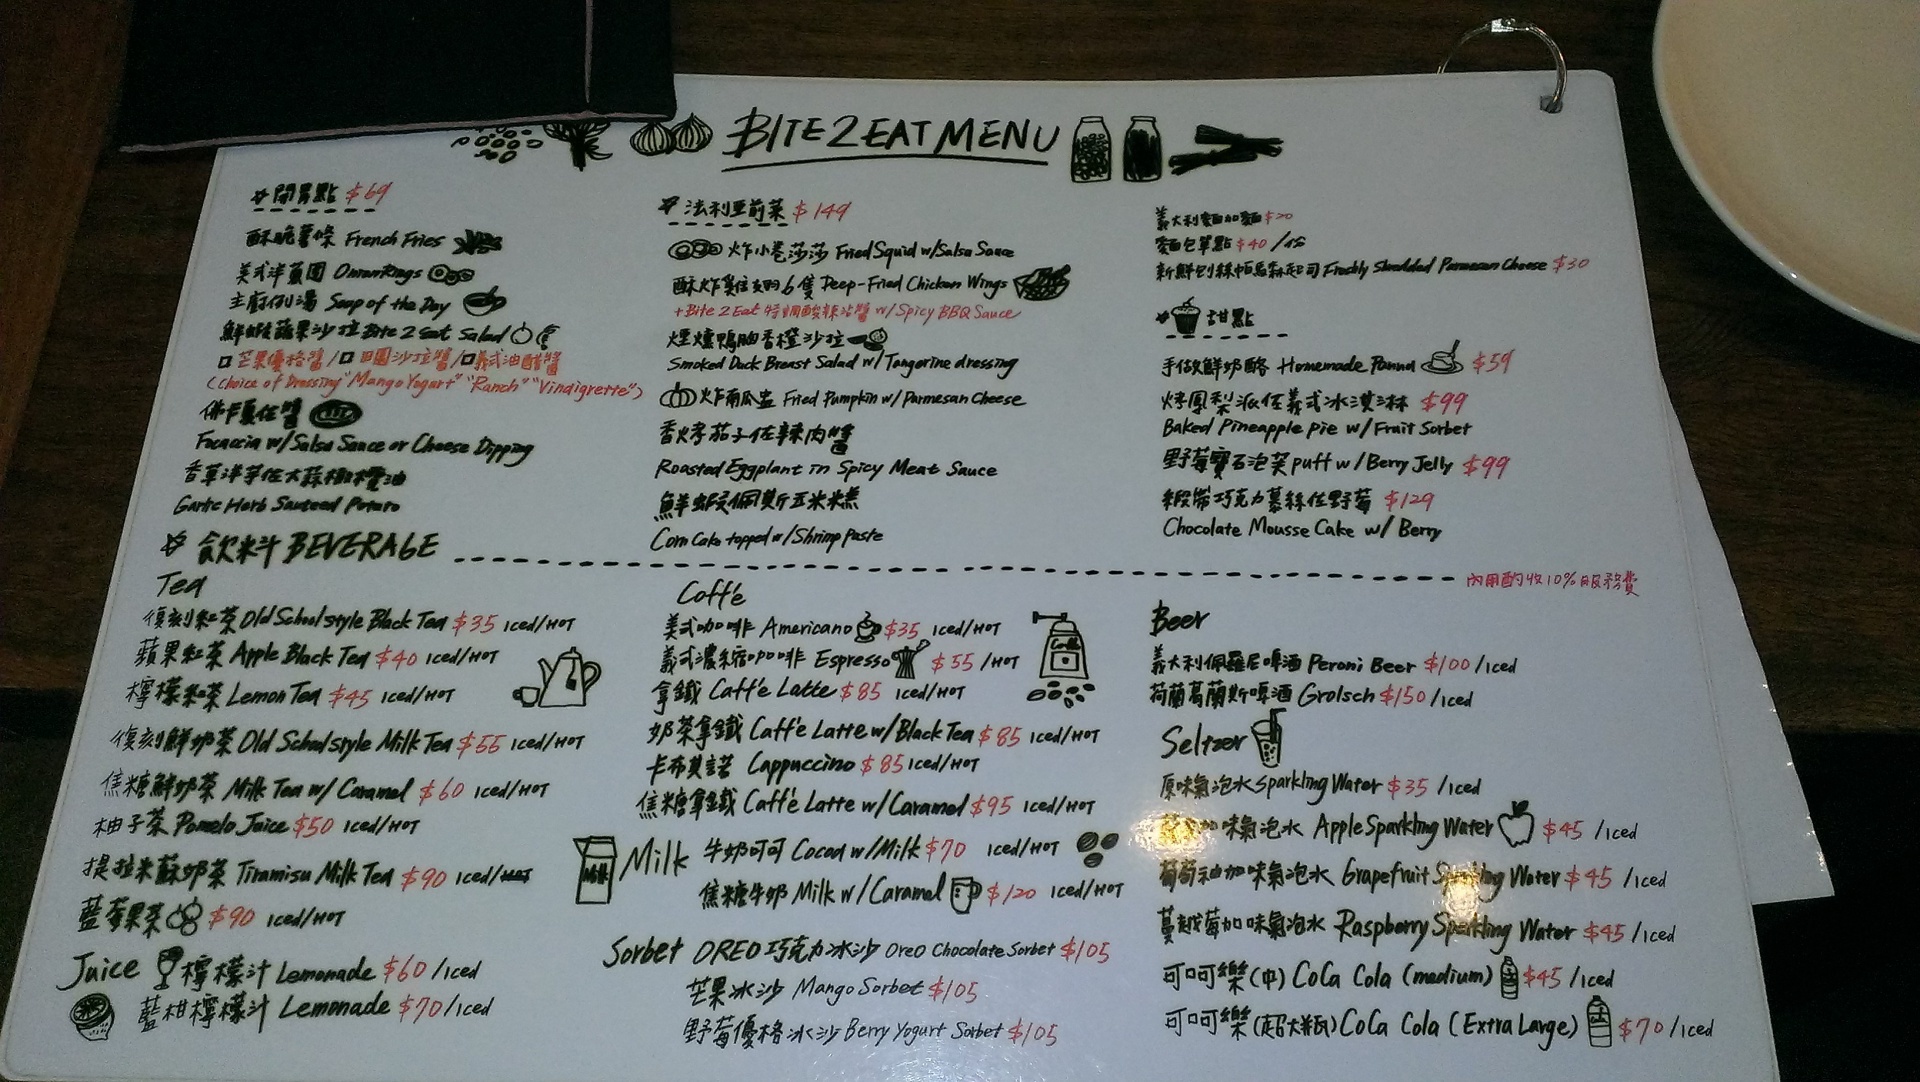 BITE 2 EAT MENU
開胃點 $69
酥脆薯條 French Fries
美式洋蔥圈 Onion Rings
主廚例湯 Soup of the Day
鮮蝦蘋果沙拉 Bite 2 Eat Salad
芒果優格醬/田園沙拉醬/義式油醋醬
(Choice of Dressing "Mango Yogurt" "Ranch" "Vindigrette")
佛卡夏佐醬
Focaccia w/Salsa Sauce or Cheese Dipping
香草洋芋佐大蒜橄欖油
Garlic Herb Sauteed Potato
法利亞前菜 $149
炸小卷莎莎 Fried Squid w/Salsa Sauce
酥炸雞翅6隻 Deep-Fried Chicken Wings
+Bite 2 Eat 特調酸辣沾醬 w/Spicy BBQ Sauce
煙燻鴨胸香橙沙拉
Smoked Duck Breast Salad w/Tangerine dressing
炸南瓜盅 Fried Pumpkin w/Parmesan Cheese
香烤茄子佐辣肉醬
Roasted Eggplant in Spicy Meat Sauce
鮮蝦佩斯玉米糕
Corn Cake topped w/Shrimp Paste
義大利麵加麵 $20
麵包單點 $40 /份
新鮮刨絲帕馬森起司 Freshly Shredded Parmesan Cheese $30
甜點
手做鮮奶酪 Homemade Panna $59
烤鳳梨派佐義式冰淇淋 $99
Baked Pineapple Pie w/Fruit Sorbet
野莓寶石泡芙 puff w/Berry Jelly $99
緞帶巧克力慕絲佐野莓 $129
Chocolate Mousse Cake w/ Berry
飲料 BEVERAGE
內用酌收10%服務費
Tea
復刻紅茶 Old School style Black Tea $35 Iced/HOT
蘋果紅茶 Apple Black Tea $40 Iced/HOT
檸檬紅茶 Lemon Tea $45 Iced/HOT
復刻鮮奶茶 Old School style Milk Tea $55 Iced/HOT
焦糖鮮奶茶 Milk Tea w/ Caramel $60 Iced/HOT
柚子茶 Pomelo Juice $50 Iced/HOT
提拉米蘇奶茶 Tiramisu Milk Tea $90 Iced/HOT
藍莓果茶 $90 Iced/HOT
Juice 檸檬汁 Lemonade $60 /Iced
藍柑檸檬汁 Lemonade $70/Iced
Coffe
美式咖啡 Americano $35 Iced/HOT
義式濃縮咖啡 Espresso $55 /HOT
拿鐵 Caffe Latte $85 Iced/HOT
奶茶拿鐵 Caffe Latte w/Black Tea $85 Iced/HOT
卡布其諾 Cappuccino $85 Iced/HOT
焦糖拿鐵 Caffe Latte w/Caramel $95 Iced/HOT
Milk
Milk 牛奶可可 Cocoa w/Milk $70 Iced/HOT
焦糖牛奶 Milk w/Caramel $120 Iced/HOT
Sorbet OREO巧克力冰沙 Oreo Chocolate Sorbet $105
芒果冰沙 Mango Sorbet $105
野莓優格冰沙 Berry Yogurt Sorbet $105
Beer
義大利佩羅尼啤酒 Peroni Beer $100 /Iced
荷蘭葛蘭斯啤酒 Grolsch $150 /Iced
Seltzer
原味氣泡水 Sparkling Water $35 /Iced
加味氣泡水 Apple Sparkling Water $45 /Iced
葡萄柚加味氣泡水 Grapefruit Sparkling Water $45 /Iced
蔓越莓加味氣泡水 Raspberry Sparkling Water $45 /Iced
可口可樂(中) CoCa Cola (medium) $45 /Iced
可口可樂(超大瓶) CoCa Cola (Extra Large) $70 /Iced